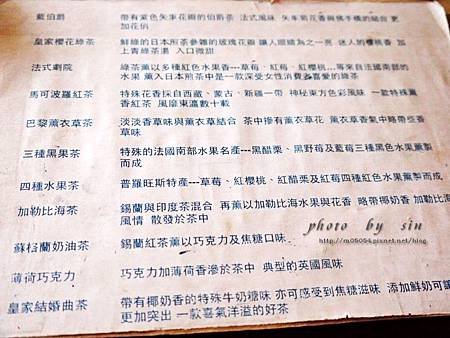 藍伯爵 帶有紫色矢車花瓣的伯爵茶 法式風味 矢車菊花香與佛手橘的融合 更
加花俏
皇家櫻花綠茶 鮮綠的日本煎茶參雜的玫瑰花瓣 讓人眼睛為之一亮 迷人的櫻桃香 加
上青綠茶湯 入口微甜
法式劇院 綠茶薰以多種紅色水果香---草莓、紅莓、紅櫻桃...等來自法國南部的
水果 薰入日本煎茶中是一款深受女性消費者喜愛的綠茶
馬可波羅紅茶 特殊花香採自西藏、蒙古、新疆一帶 神秘東方色彩風味 一款特殊薰
香紅茶 風靡東瀛數十載
巴黎薰衣草茶 淡淡香草味與薰衣草結合 茶中摻有薰衣草花 薰衣草香氣中略帶些香
草味
三種黑果茶 特殊的法國南部水果名產---黑醋栗、黑野莓及藍莓三種黑色水果薰製
而成
四種水果茶 普羅旺斯特產---草莓、紅櫻桃、紅醋栗及紅莓四種紅色水果薰製而成
加勒比海茶 錫蘭與印度茶混合 再薰以加勒比海水果與花香 略帶椰奶香 加勒比海
風情 散發於茶中
蘇格蘭奶油茶 錫蘭紅茶薰以巧克力及焦糖口味
薄荷巧克力 巧克力加薄荷香滲於茶中 典型的英國風味
皇家結婚曲茶 帶有椰奶香的特殊牛奶糖味 亦可感受到焦糖滋味 添加鮮奶可讓
更加突出 一款喜氣洋溢的好茶
photo by sin
http://m05054.pixnet.net/blog